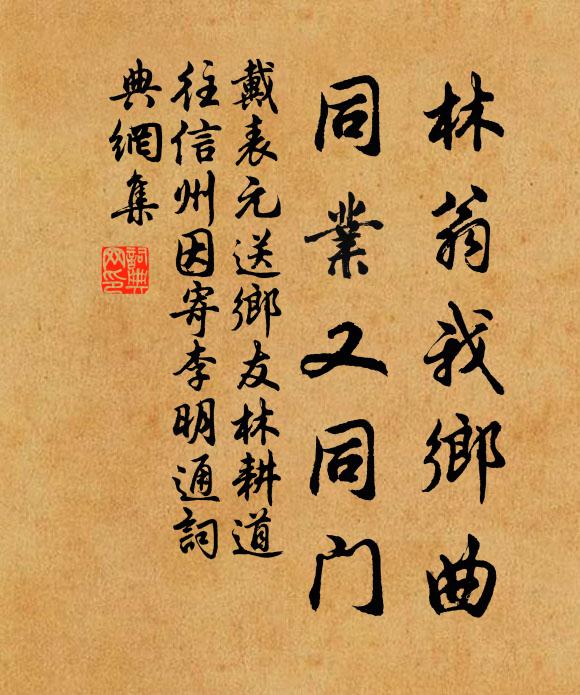 林翁我鄉曲
同業又同門
戴表元送鄉友林耕道
往信州因寄李明通詞
典網集
詞典網印